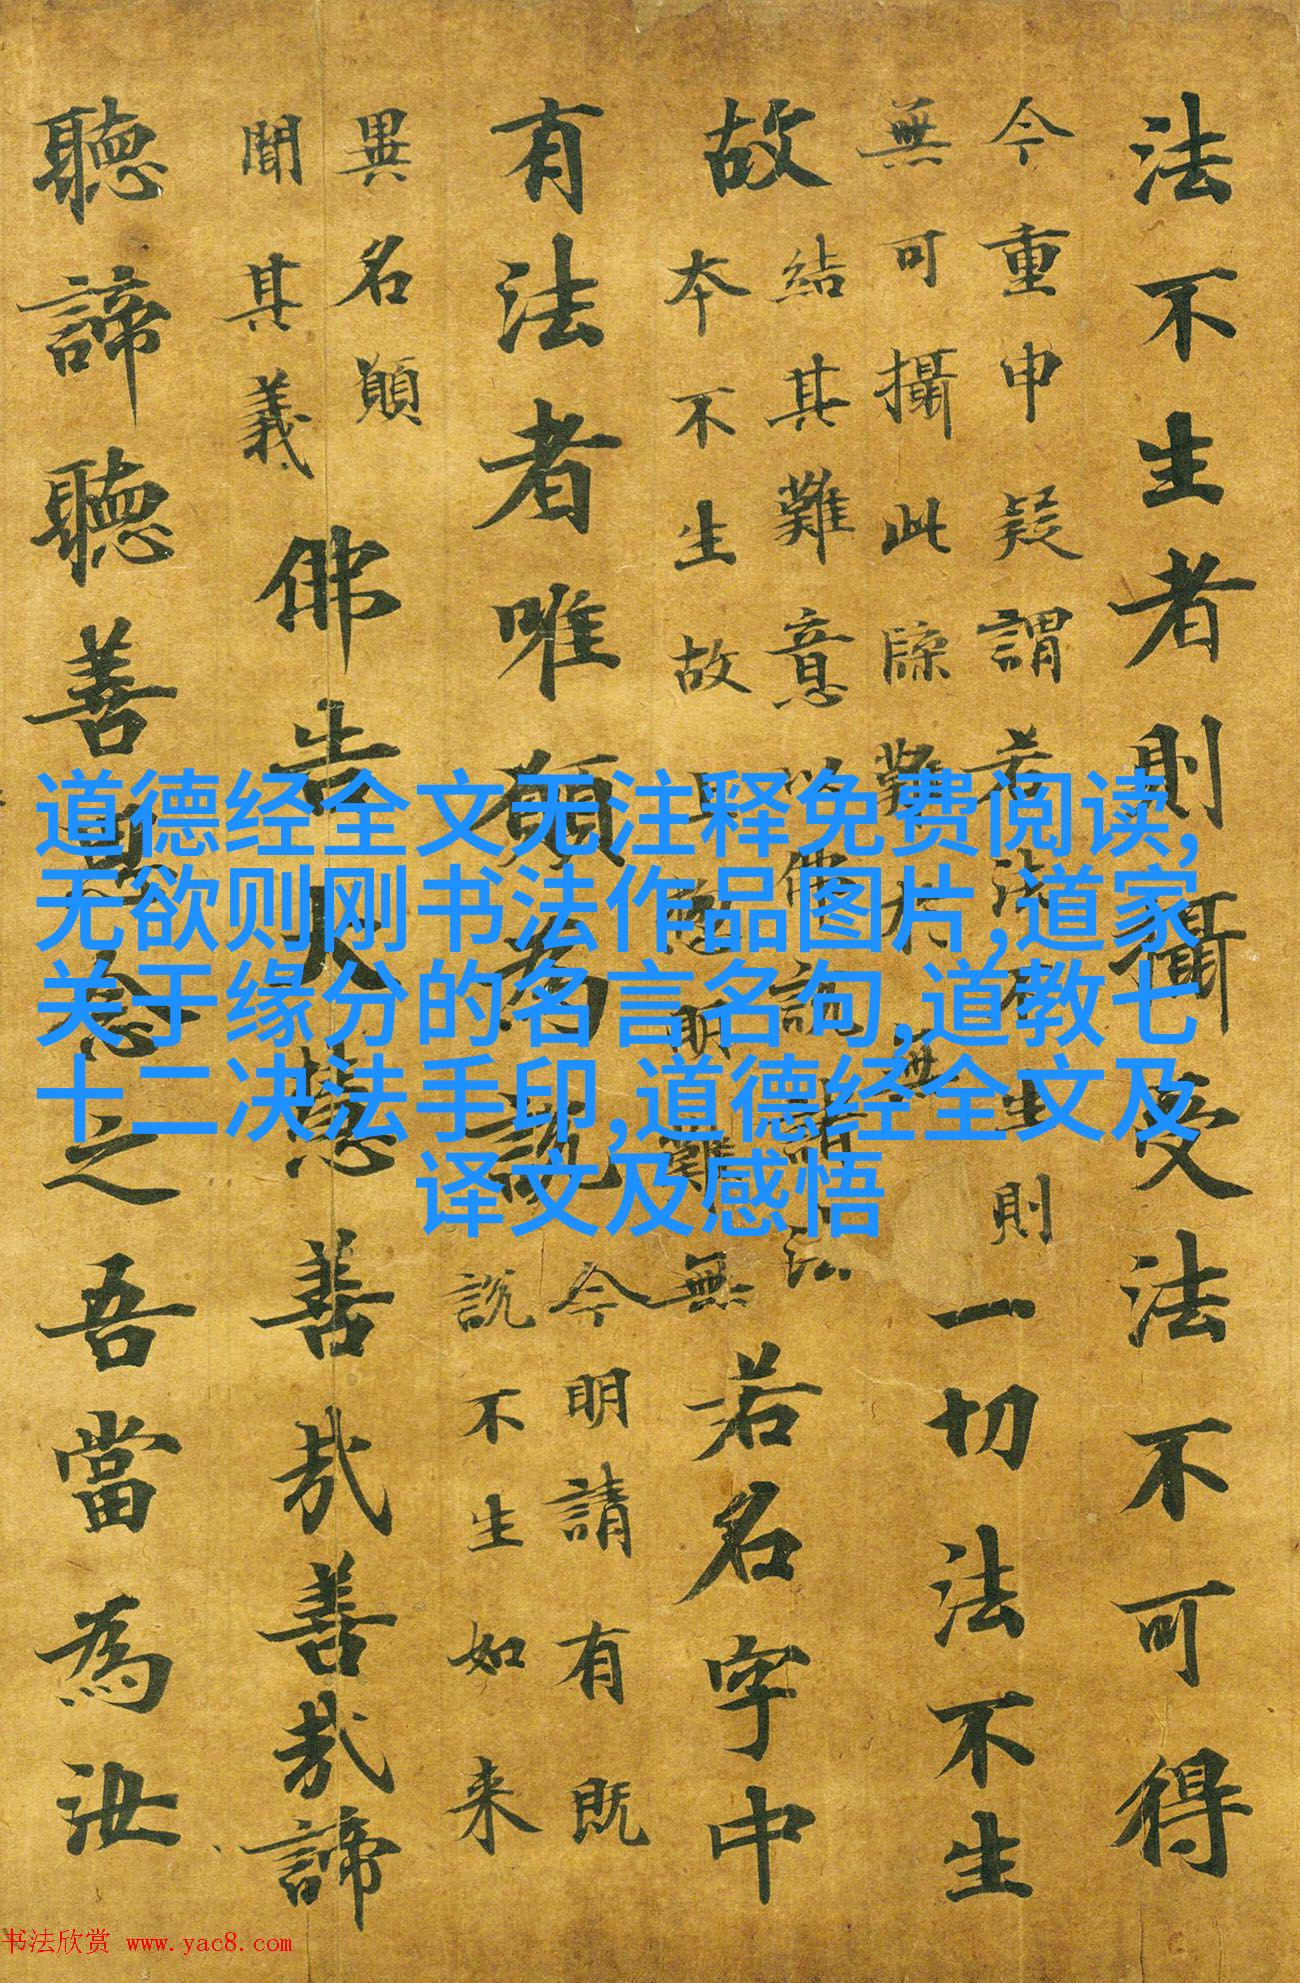 法不生者則攝受法不可得
今重申疑謂若法不生則
無可攝此牒難無
一切法不生
故
結其難意以佛說諸法
本不生故且起明難無
若名字中
有法者唯願為說
今明請有既
說不生如来
異名願
聞其義
佛告大慧善哉善哉諦
聽諦聽善思念之吾當為汝
道德经全文无注释免费阅读,
无欲则刚书法作品图片,道家
关于缘分的名言名句,道教七
十二决法手印,道德经全文及
译文及感悟
书法欣赏 www.yac8.com